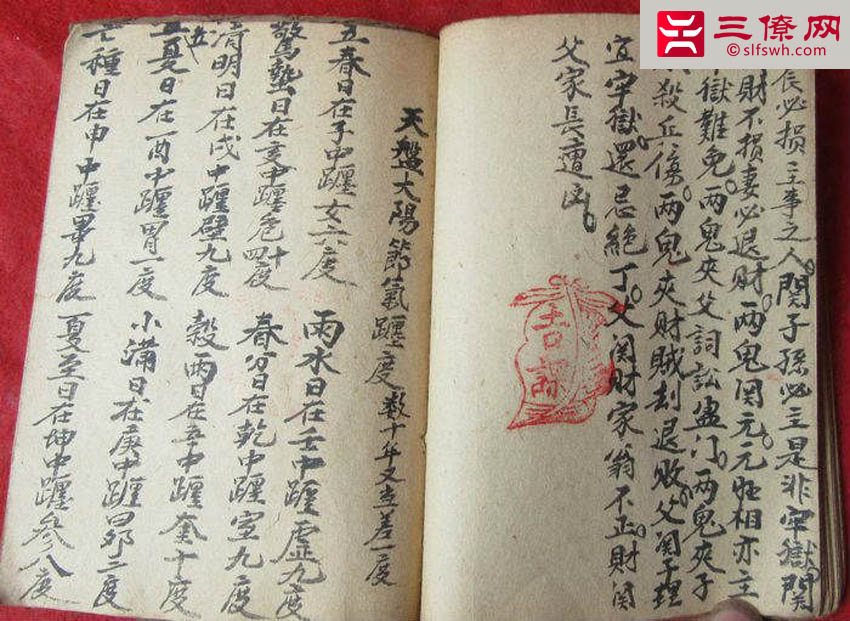 三僚网
slfswh.com
辰必損主事之人。関子孫必主是非牢獄。関
財不損妻必退財。两鬼関元。元旺相亦主
獄難免。两鬼夾父詞訟盈门。两鬼夾子
殺丘傍。两鬼夾財賊刦退敗。父関子理
宜牢獄。還忌絶丁。父関財家翁不正。財関
父家長遭凶。
天盤太陽節氣躔度 数十年又去差一度
立春日在子中躔女六度 雨水日在壬中躔虚九度
驚蟄日在亥中躔危四十度 春分日在乾中躔室九度
清明日在戌中躔壁九度 穀雨日在辛中躔奎十度
立夏日在酉中躔胃一度 小满日在庚中躔昴二度
種日在申中躔畢九度 夏至日在坤中躔參八度